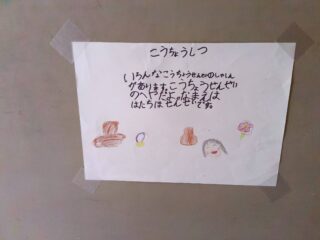 こうちょうしつ
いろんなこうちょうせんせいのしゃしん
があります。こうちょうせんせい
のへやだよ。なまえは
はたちはせんせいです。